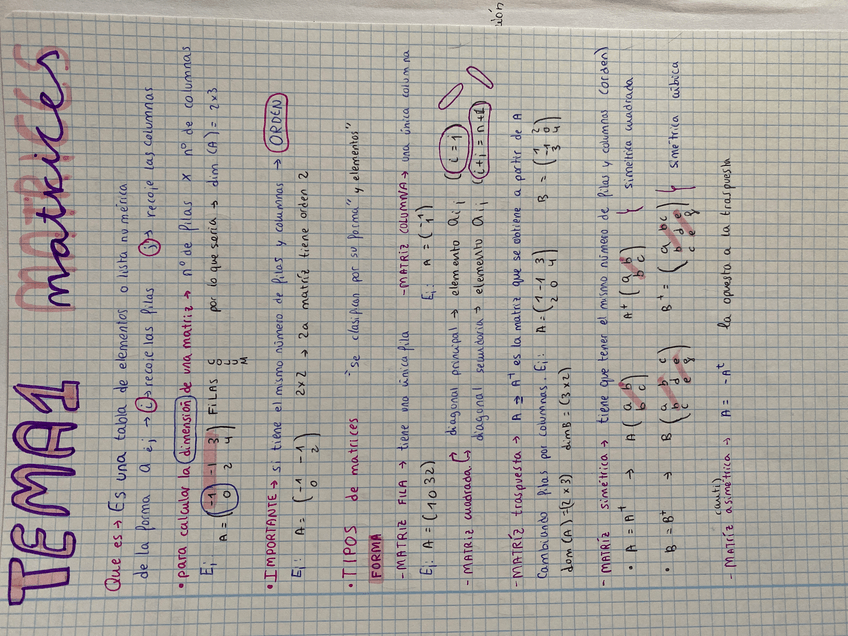 TEMA 1 MATRICES matrices
Que es → Es una tabla de elementos o lista numérica
de la forma a i j → i → recoje las filas j → recoje las columnas
• para calcular la dimensión de una matriz → nº de filas x nº de columnas
Ej: A = (-1 -1 3 / 0 2 4) FILAS COLUM por lo que sería → dim (A) = 2x3
• IMPORTANTE → si tiene el mismo número de filas y columnas → ORDEN
Ej: A = (-1 -1 / 0 2) 2x2 → 2a matriz tiene orden 2
• TIPOS de matrices "se clasifican por su forma" y elementos"
FORMA
- MATRIZ FILA → tiene una única fila - MATRIZ COLUMNA → una única columna
Ej: A = (1 0 3 2) Ej: A = (-1 / 1)
- MATRIZ cuadrada → diagonal principal → elemento a i j (i = j)
diagonal secundaria → elemento a i j (i+j = n+1)
- MATRÍZ traspuesta → A ⇒ A^t es la matriz que se obtiene a partir de A
Cambiando filas por columnas. Ej: A = (1 -1 3 / 2 0 4) B = (1 2 / -1 0 / 3 4)
dom (A) = (2x3) dim B = (3x2)
- MATRÍZ simétrica → tiene que tener el mismo número de filas y columnas (orden)
• A = A^t → A (a b / b c) A^t (a b / b c) } simetrica cuadrada
• B = B^t → B (a b c / b d e / c e g) B^t = (a b c / b d e / c e g) } simétrica cúbica
(anti)
- MATRÍZ asimétrica → A = -A^t la opuesta a la traspuesta
ión